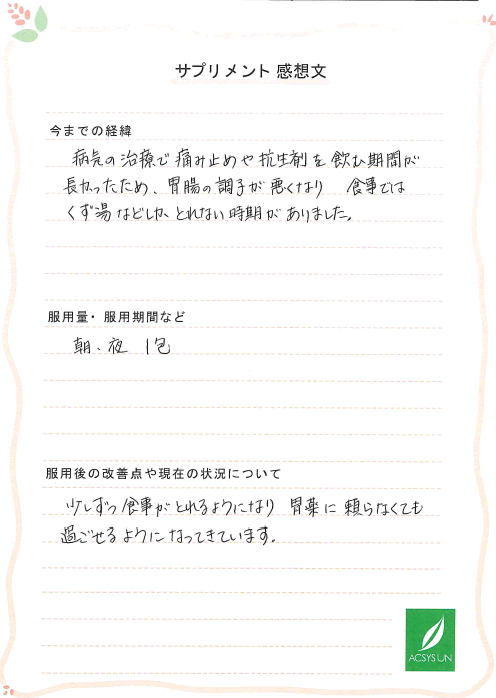 サプリメント 感想文
今までの経緯
病気の治療で痛み止めや抗生剤を飲む期間が
長かったため、胃腸の調子が悪くなり 食事では
くず湯などしか とれない時期がありました。
服用量・服用期間など
朝、夜 1包
服用後の改善点や現在の状況について
少しずつ食事がとれるようになり 胃薬に頼らなくても
過ごせるようになってきています。
ACSYSUN